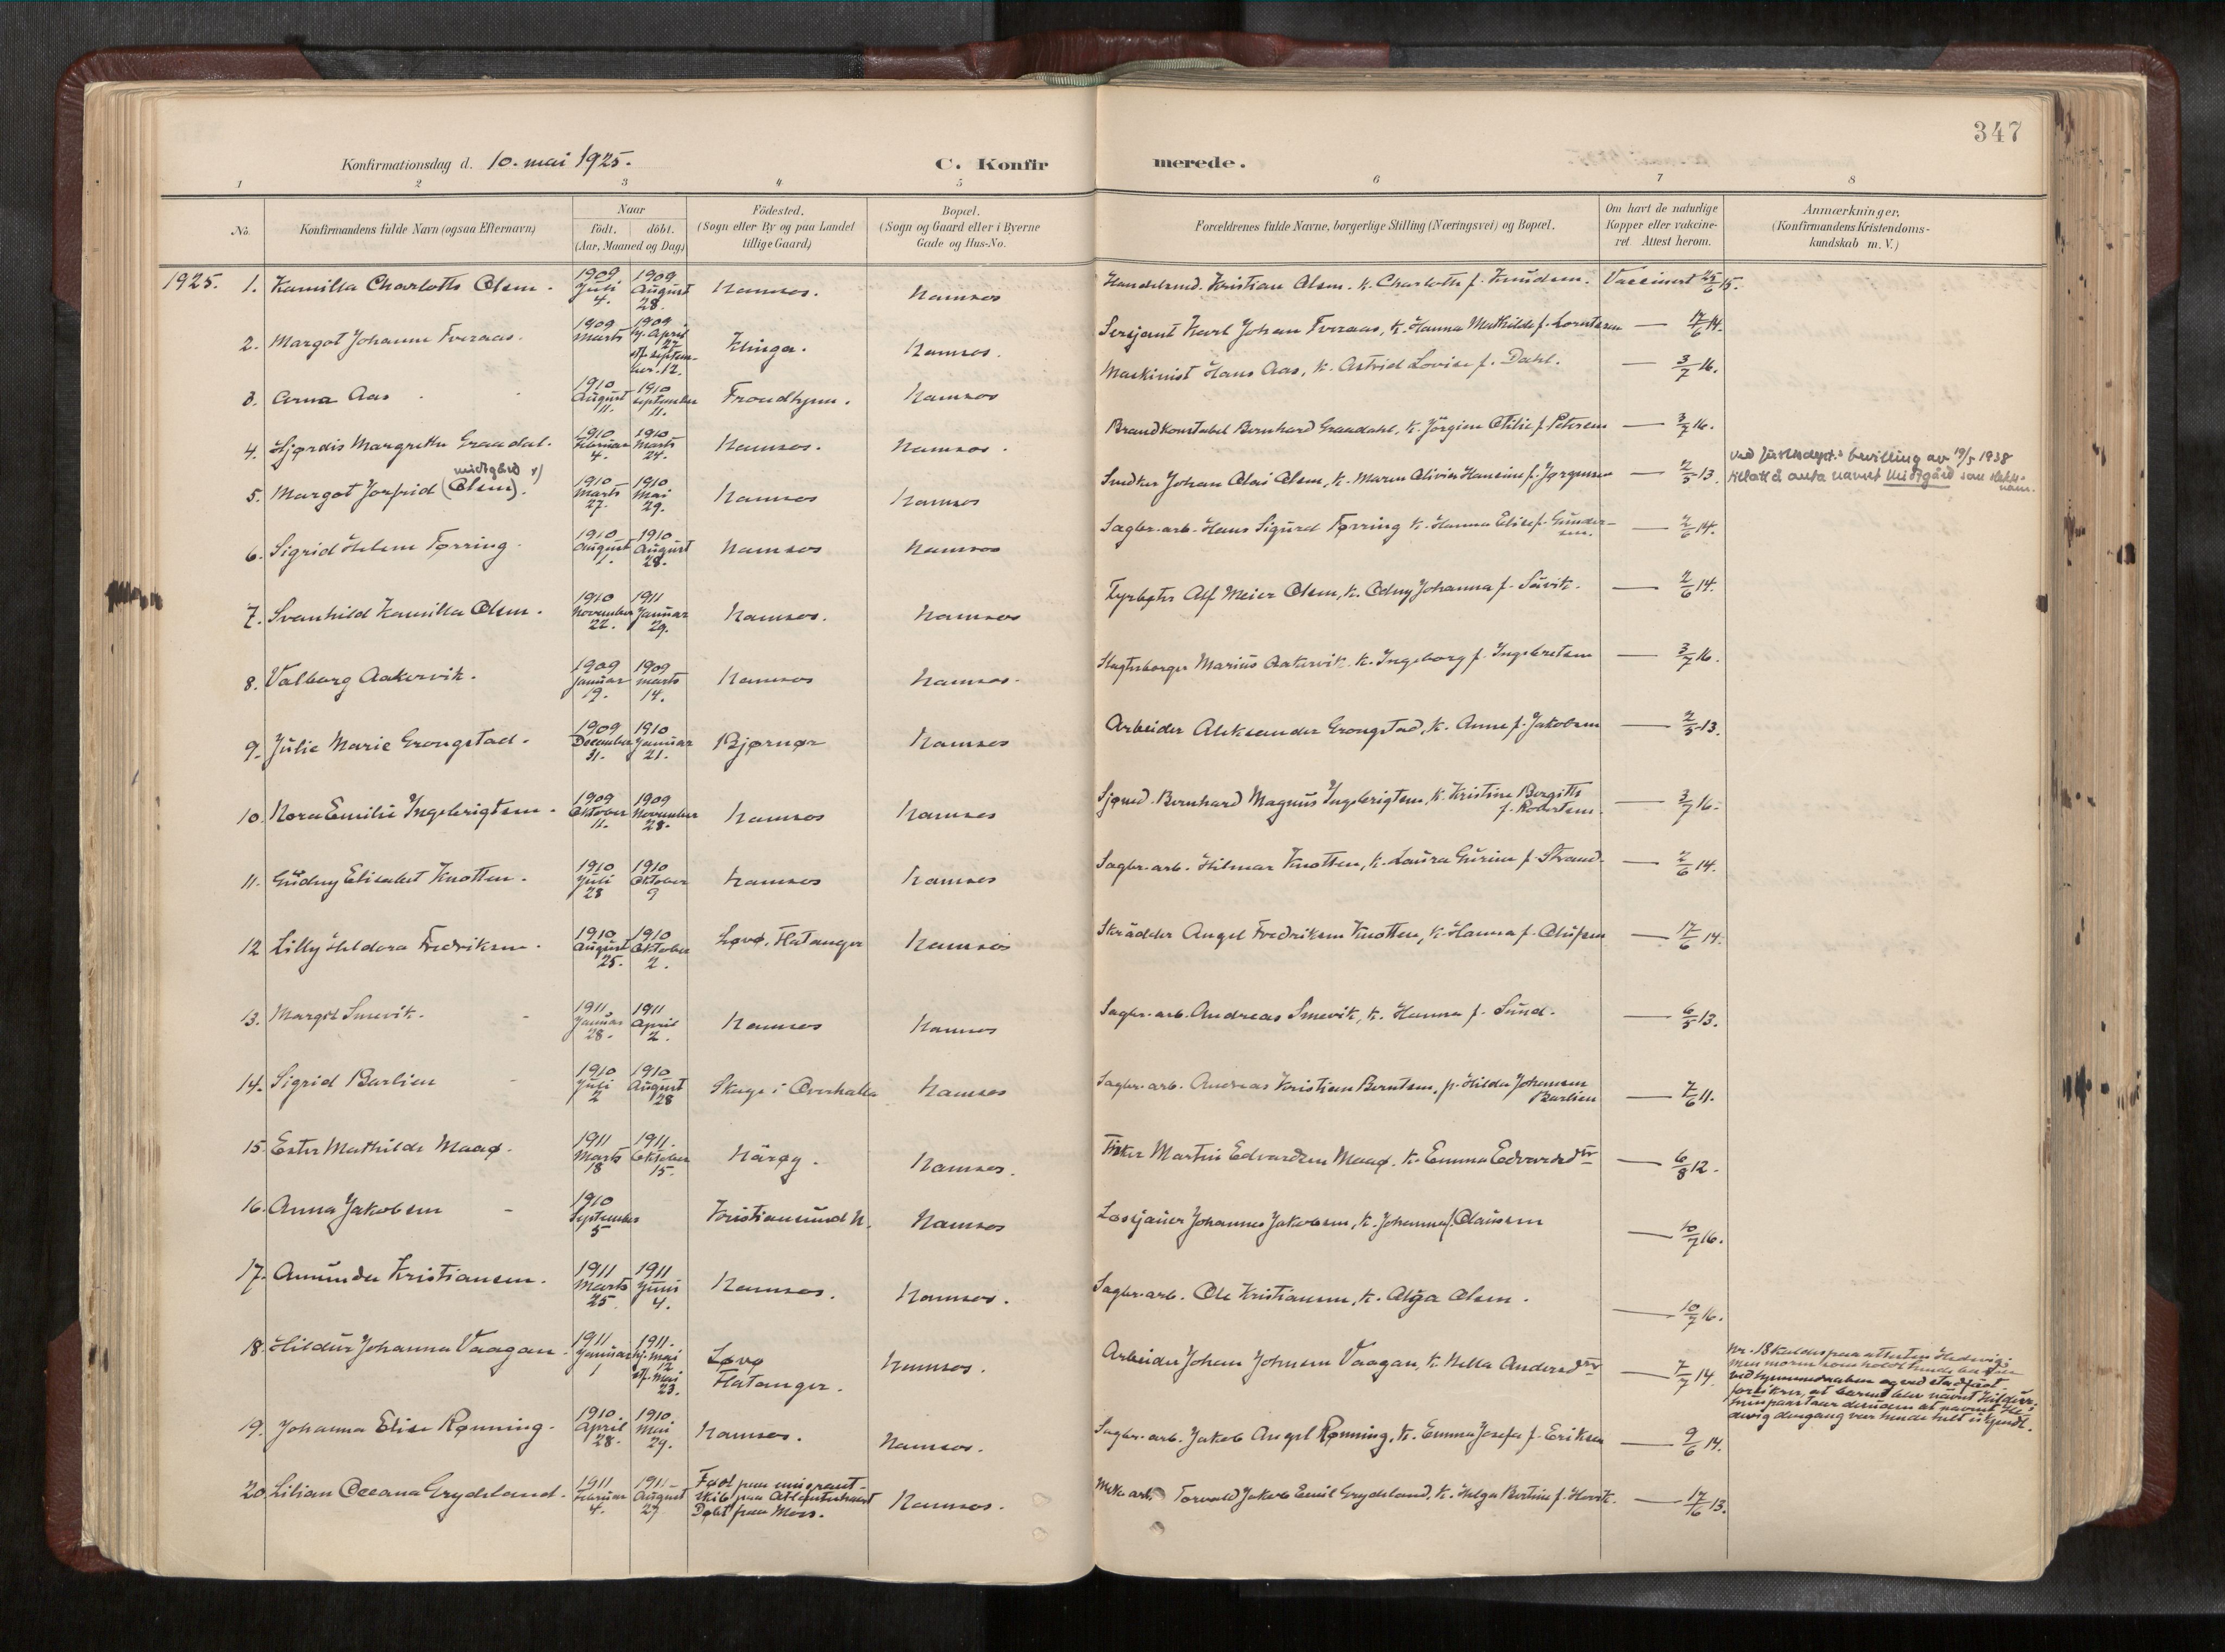 347
Konfirmationsdag d. 10. mai 1925.
C. Konfirmerede.
1 2 3 4 5 6 7 8
No.
Konfirmandens fulde Navn (ogsaa Efternavn)
Naar
födt. döbt.
(Aar, Maaned og Dag)
Födested.
(Sogn eller By og paa Landet
tillige Gaard)
Bopæl.
(Sogn og Gaard eller i Byerne
Gade og Hus-No.
Forældrenes fulde Navne, borgerlige Stilling (Næringsvei) og Bopæl.
Om havt de naturlige
Kopper eller vakcine-
ret. Attest herom.
Anmærkninger.
(Konfirmandens Kristendoms-
kundskab m. V.)
1925. 1. Kamilla Charlotte Olsen. 1909 Juli 4. 1909 August 28. Namsos. Namsos Handelsmd. Kristian Olsen. K. Charlotte f. Knudsen. Vaccinert 25/6 15.
2. Margot Johanne Tveraas. 1909 Marts 1909 hj. April 27 st. septem- ber. 12. Klinga. Namsos. Sersjant Karl Johan Tveraas, K. Hanna Mathilde f. Lorntsen — 17/6 14.
3. Arna Aas 1910 August 11. 1910 september 11. Trondhjem. Namsos Maskinist Hans Aas, K. Astrid Lovise f. Dahl. — 3/7 16.
4. Hjørdis Margrethe Graadal. 1910 Februar 4. 1910 Marts 24. Namsos. Namsos. Brandkonstabel Bernhard Graadahl, K. Jörgine Otilie f. Petersen — 3/7 16.
midtgård 1)
5. Margot Jorfrid (Olsen). 1910 Marts 27. 1910 Mai 29. Namsos Namsos Snedker Johan Olai Olsen, K. Maren Olivia Hansine f. Jørgensen — 2/5 13.
ved Justisdept.s bevilling av 19/5 1938
tillatt å anta navnet Midtgård som slekts-
navn.
6. Sigrid Helene Tørring. 1910 August 1. 1910 August 28. Namsos Namsos Sagbr. arb. Hans Sigurd Tørring K. Hanna Elise f. Gunder-
sen. — 2/6 14.
7. Svanhild Kamilla Olsen. 1910 November 22. 1911 Januar 29. Namsos. Namsos Fyrbøter Alf Meier Olsen, K. Odny Johanna f. Suvik. — 2/6 14.
8. Valborg Aakervik. 1909 Januar 19. 1909 marts 14. Namsos Namsos. Marius Aakervik. K. Ingeborg f. Ingebretsen — 3/7 16.
9. Julie Marie Grongstad. 1909 December 31. 1910 Januar 21. Bjørnør Namsos Arbeider Aleksander Grongstad, K. Anne f. Jakobsen — 2/5 13.
10. Nora Emilie Ingebrigtsen. 1909 Oktober 11. 1909 November 28. Namsos Namsos Sjømd. Bernhard Magnus Ingebrigtsen, K. Kristine Bergitte
f. Robertsen. — 3/7 16.
11. Gudny Elisabet Knotten. 1910 Juli 28 1910 Oktober 9 Namsos Namsos Sagbr. arb. Hilmar Knotten, K. Laura Gurine f. Strand. — 2/6 14.
12 Lilly Heldora Fredriksen. 1910 August 25. 1910 Oktober 2. Løvø, Flatanger Namsos Skrædder Angel Fredriksen Knotten, K. Hanna f. Olufsen — 17/6 14.
13. Margit Smevik. 1911 Januar 28. 1911 April 2. Namsos Namsos Sagbr. arb. Andreas Smevik, K. Hanna f. Sund. — 6/5 13.
14. Sigrid Barlien 1910 Juli 2 1910 August 28 Skage i Overhalla Namsos Sagbr. arb. Andreas Kristian Berntsen, p. Hilda Johansen
Barlien — 7/6 11.
15. Ester Mathilde Maaø. 1911 Marts 18 1911. Oktober 15. Nærøy. Namsos. Fisker Martin Edvardsen Maaø. K. Emma Edvardsdtr — 6/8 12.
16. Anna Jakobsen 1910 September 5 Kristiansund N. Namsos Johannes Jakobsen, K. Johanna f. Olaussen — 10/7 16.
17. Amunda Kristiansen. 1911 Marts 25. 1911 Juni 4. Namsos. Namsos. Sagbr. arb. Ole Kristiansen, K. Olga Olsen. — 10/7 16.
18. Hildur Johanna Vaagan. 1911 Januar 1 1911. hj. mai 12. st. Mai 23. Løvø
Flatanger. Namsos. Arbeider Johan Johnsen Vaagan, K. Nella Andersdtr — 7/7 14.
Nr. 18 kaldes paa attesten Hedvig;
men moren som holdt hende baade
ved hjemmedaaben og ved stadfæst.
forsikrer, at barnet blev nævnt Hildur;
hun paastaar desuden at navnet He-
dvig dengang var hende helt ukjendt.
19. Johanna Elise Rønning. 1910. April 28. 1910. Mai 29. Namsos. Namsos. Sagbr. arb. Jakob Angel Rønning, K. Emma Josefa f. Eriksen — 9/6 14.
20. Lilian Oceana Grydeland. 1911 Februar 4. 1911 August 27 Født paa emigrant-
skib paa Atlanterhavet
Døbt paa Mors. Namsos. arb. Torvald Jakob Emil Grydeland, K. Helga Bertine f. Hovik. — 17/6 13.